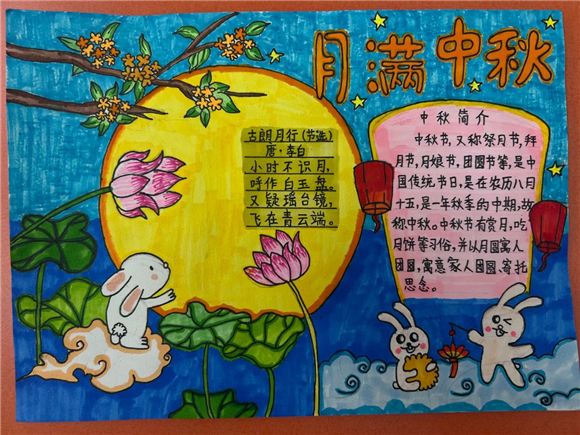 月满中秋
古朗月行(节选)
唐·李白
小时不识月,
呼作白玉盘。
又疑瑶台镜,
飞在青云端。
中秋简介
中秋节,又称祭月节,拜
月节,月娘节,团圆节等,是中
国传统节日,是在农历八月
十五,是一年秋季的中期,故
称中秋。中秋节有赏月,吃
月饼等习俗,并以月圆寓人
团圆,寓意家人团圆,寄托
思念。